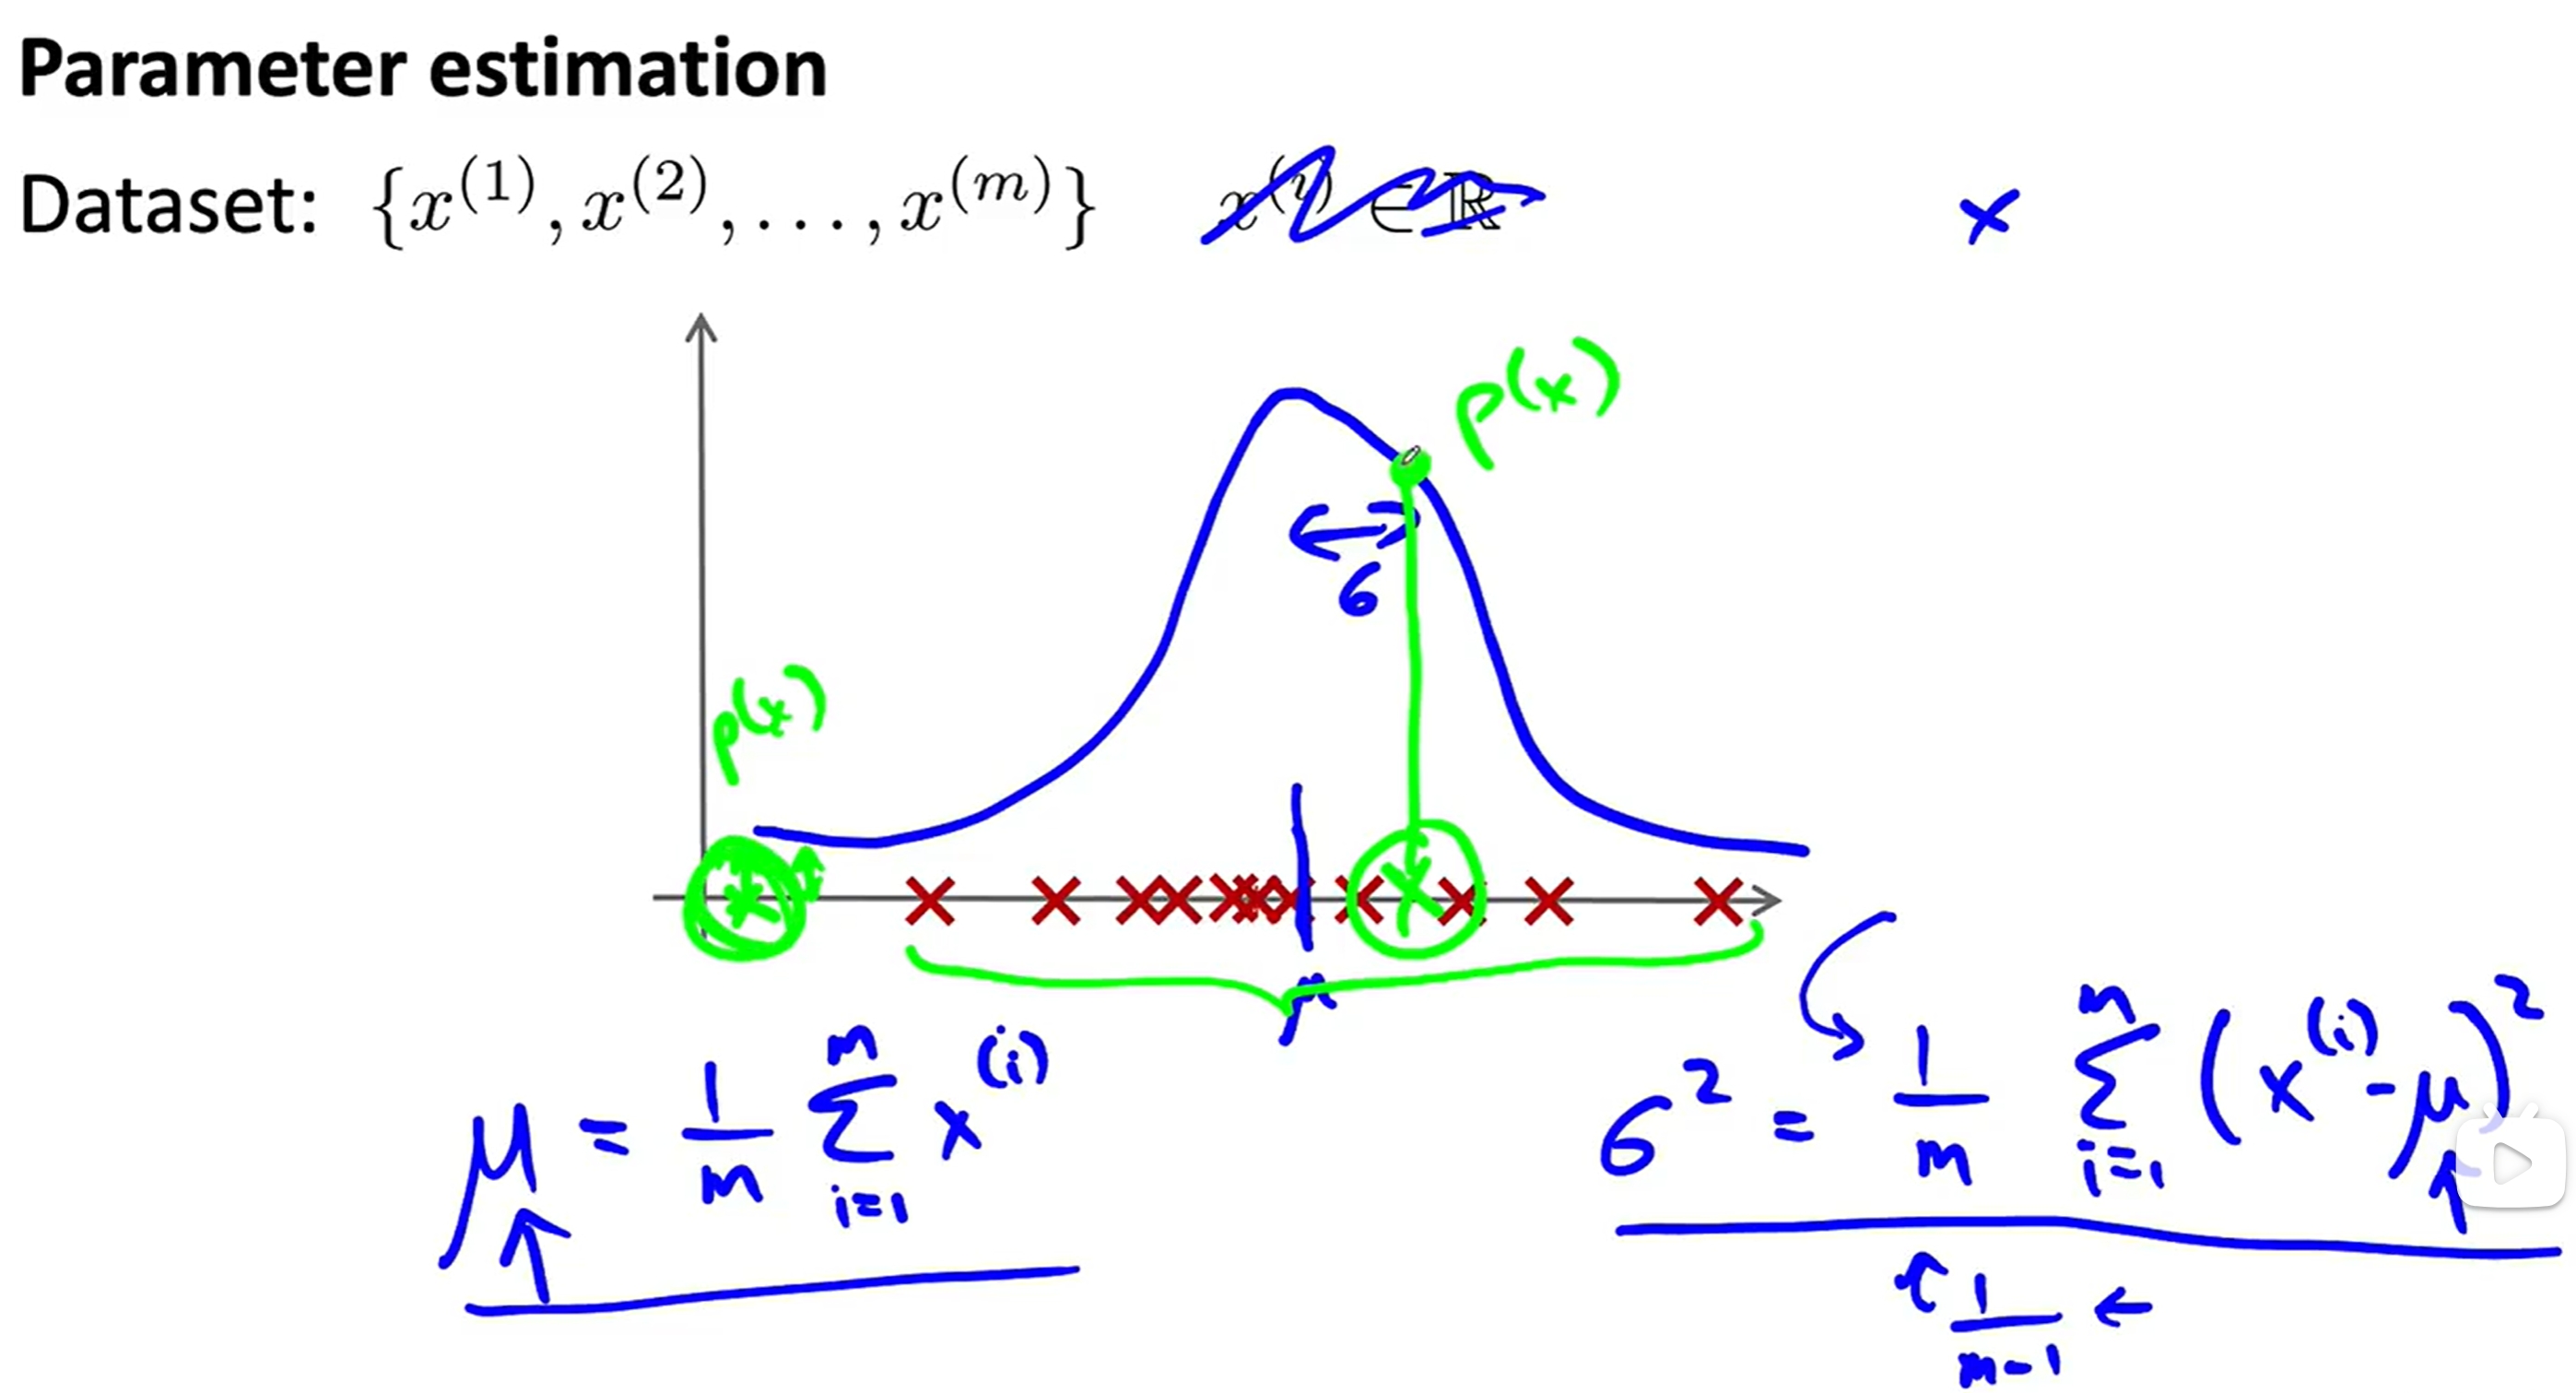 Parameter estimation
Dataset: {x^(1), x^(2), ..., x^(m)} x^(i) ∈ ℝ x
p(x)
σ
p(x)
μ
μ = 1/m Σ_{i=1}^{m} x^(i)
σ² = 1/m Σ_{i=1}^{m} (x^(i) - μ)²
1/(m-1) ←